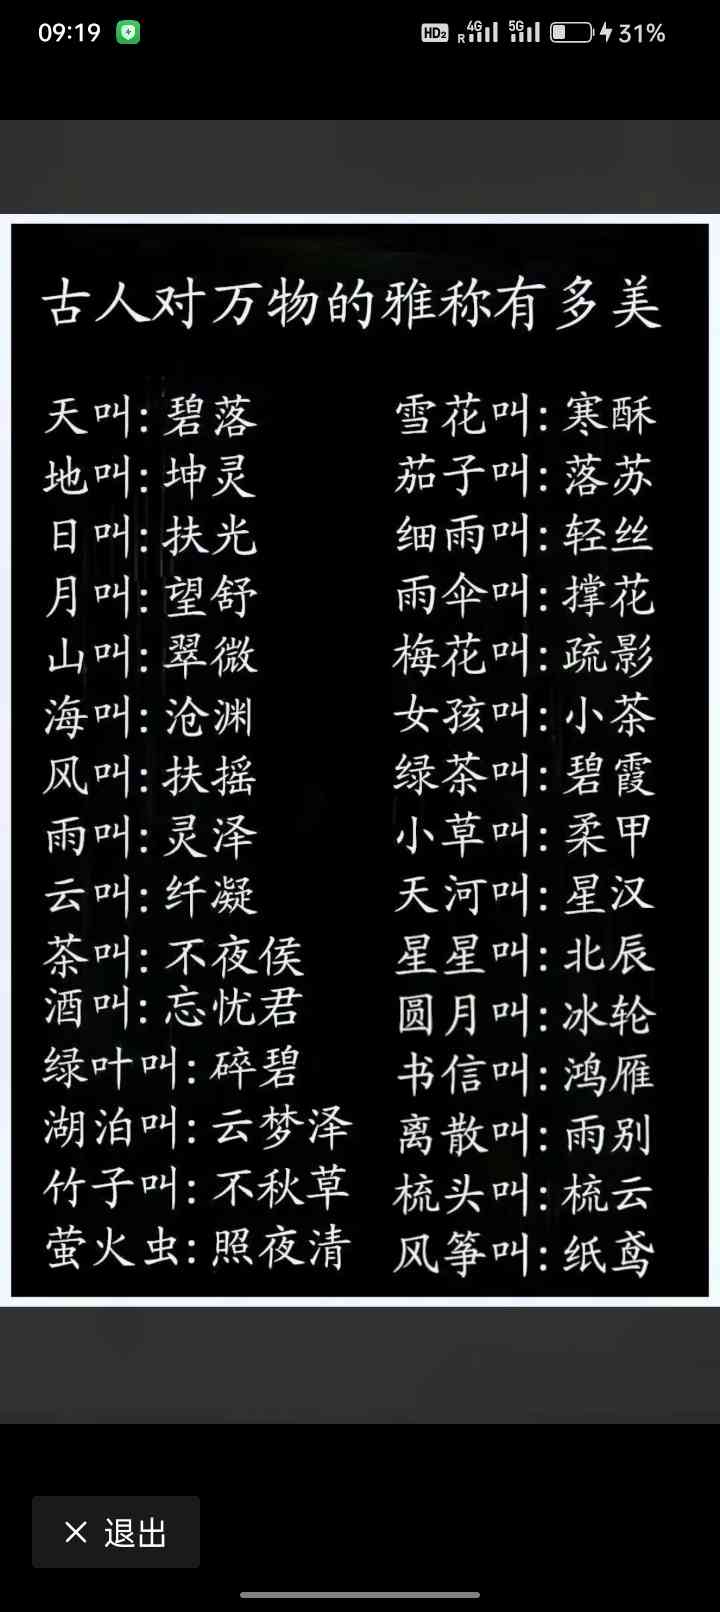 09:19 HD2 R 4G 5G 31%
古人对万物的雅称有多美
天叫:碧落
地叫:坤灵
日叫:扶光
月叫:望舒
山叫:翠微
海叫:沧渊
风叫:扶摇
雨叫:灵泽
云叫:纤凝
茶叫:不夜侯
酒叫:忘忧君
绿叶叫:碎碧
湖泊叫:云梦泽
竹子叫:不秋草
萤火虫:照夜清
雪花叫:寒酥
茄子叫:落苏
细雨叫:轻丝
雨伞叫:撑花
梅花叫:疏影
女孩叫:小茶
绿茶叫:碧霞
小草叫:柔甲
天河叫:星汉
星星叫:北辰
圆月叫:冰轮
书信叫:鸿雁
离散叫:雨别
梳头叫:梳云
风筝叫:纸鸢
退出